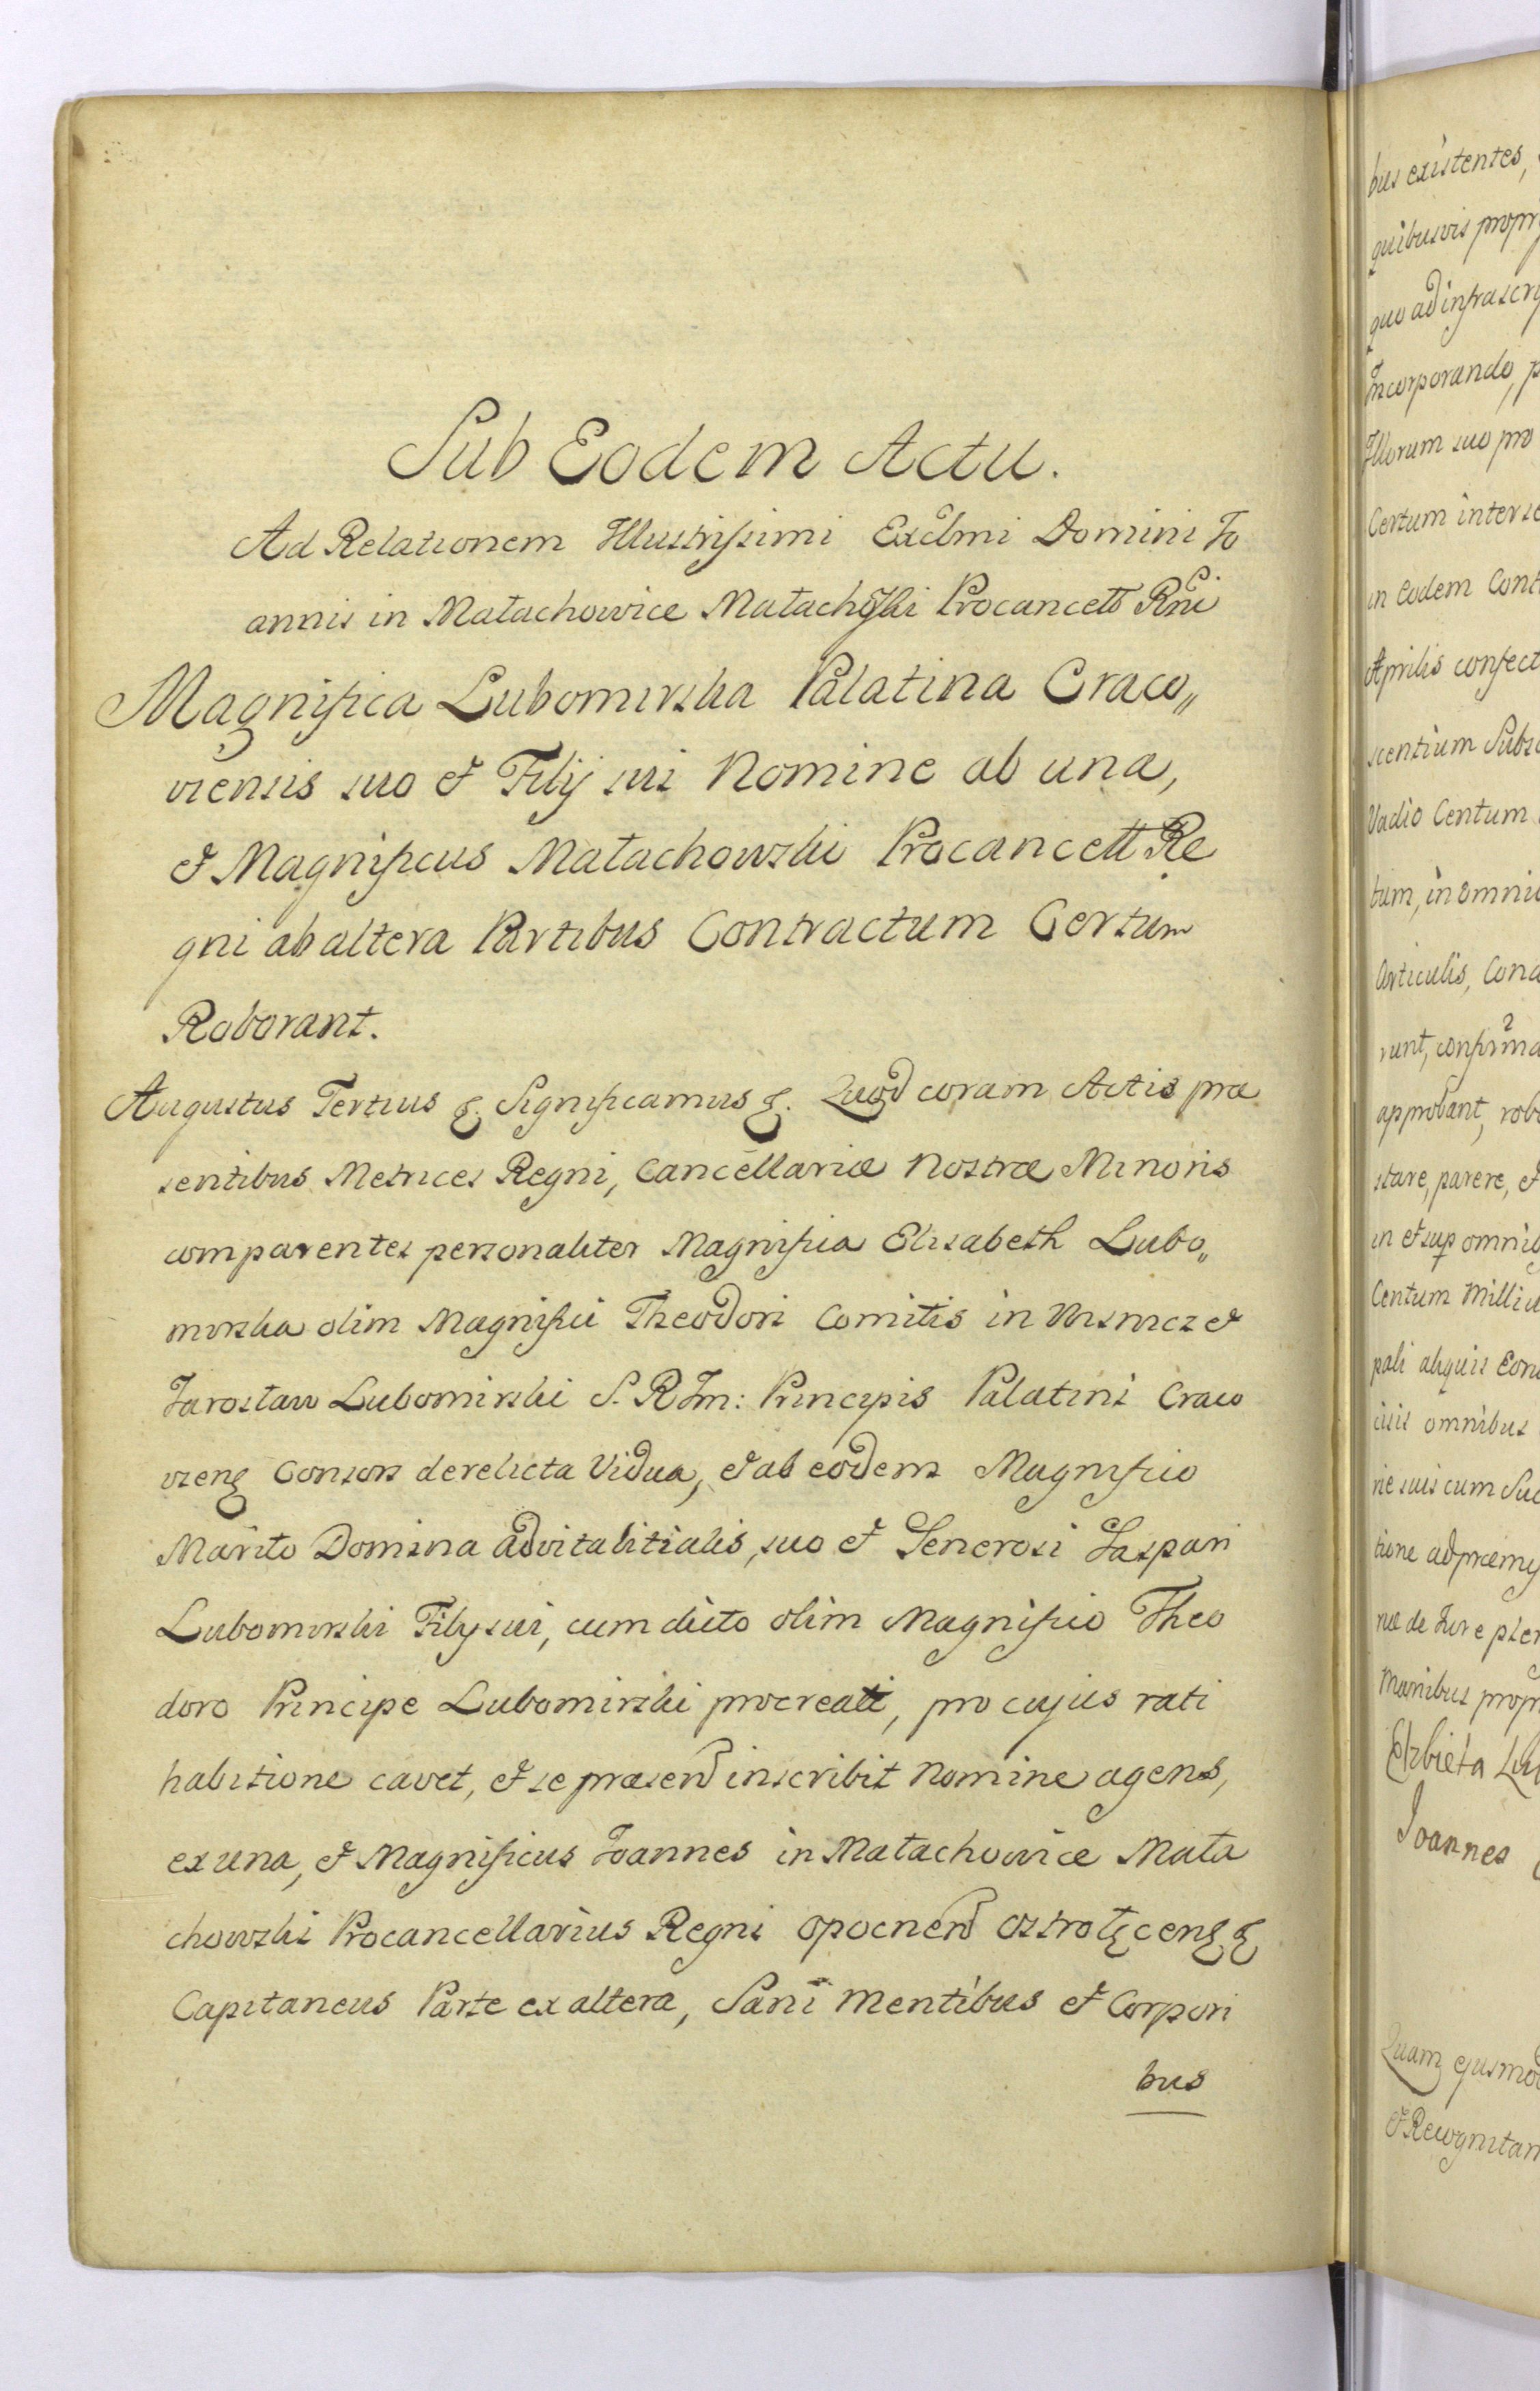 Sub Eodem Actu.
Ad Relationem Illustrissimi Excellmi Domini Jo
annis in Małachowice Małachoski Procancell Rni
Magnifica Lubomirska Palatina Craco„
viensis suo et Filij sui Nomine ab una,
et Magnificus Małachowski Procancell Re
gni ab altera Partibus Contractum Certum
Roborant.
Augustus Tertius &. Significamus &. Quod coram Actis præ
sentibus Metrices Regni, Cancellariæ Nostræ Minoris
comparentes personaliter Magnifica Elisabeth Lubo„
mirska olim Magnifici Theodori Comitis in Wisnicz et
Jarosław Lubomirski S. R. Im: Principis Palatini Craco
vien Consors derelicta Vidua, et ab eodem Magnifico
Marito Domina advitalitialis, suo et Generosi Gaspari
Lubomirski Filij sui, cum dicto olim Magnifico Theo
doro Principe Lubomirski procreati, pro cujus rati
habitione cavet, et se præsen inscribit nomine agens,
ex una, et Magnificus Joannes in Małachowice Mała
chowski Procancellarius Regni Opocnen Ostrołęcen &
Capitaneus Parte ex altera, Sani Mentibus et Corpori
bus
bus existentes,
quibusvis propr
quo ad infrascr
Incorporando, p
Illorum suo pro
Certum inter se
in Eodem Cont
Aprilis confect
scentium Subs
Vadio Centum
tum, in omnib
Articulis, Cond
runt, confirma
approbant, rob
stare, parere, et
in et sup omnib
Centum Milliu
pali aliquis Eor
isis omnibus
rie suis cum Suc
tione ad præmi
ne de Jure pler
Manibus propr
Elzbieta Lu
Joannes
Quam ejusmod
et Recognitam